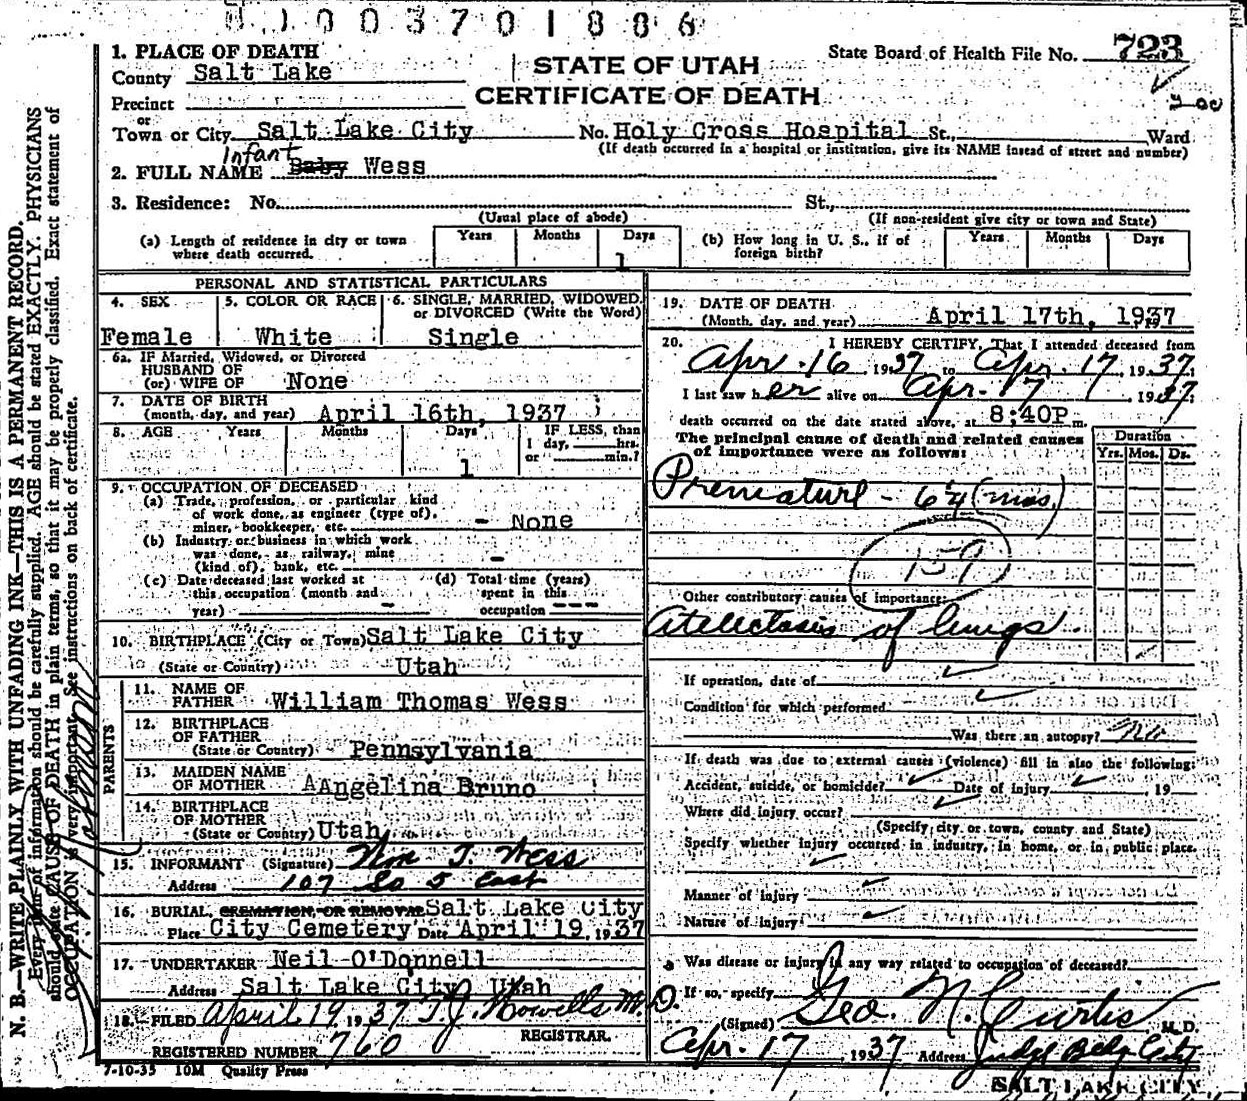 0 0 3 7 0 1 8 8 6
1. PLACE OF DEATH
County Salt Lake
STATE OF UTAH
CERTIFICATE OF DEATH
State Board of Health File No. 723
Precinct
or
Town or City Salt Lake City No. Holy Cross Hospital St., Ward
(If death occurred in a hospital or institution, give its NAME instead of street and number)
Infant
2. FULL NAME Baby Wess
3. Residence: No. St.,
(Usual place of abode) (If non-resident give city or town and State)
(a) Length of residence in city or town where death occurred. Years Months Days 1
(b) How long in U. S., if of foreign birth? Years Months Days
PERSONAL AND STATISTICAL PARTICULARS
4. SEX 5. COLOR OR RACE 6. SINGLE, MARRIED, WIDOWED, or DIVORCED (Write the Word)
Female White Single
6a. IF Married, Widowed, or Divorced
HUSBAND OF
(or) WIFE OF None
7. DATE OF BIRTH
(month, day, and year) April 16th, 1937
8. AGE Years Months Days IF LESS, than
1 day, hrs.
or min.?
1
9. OCCUPATION OF DECEASED
(a) Trade, profession, or particular kind
of work done, as engineer (type of),
miner, bookkeeper, etc. - None
(b) Industry or business in which work
was done, as railway, mine
(kind of), bank, etc. -
(c) Date deceased last worked at
this occupation (month and
year) -
(d) Total time (years)
spent in this
occupation ---
10. BIRTHPLACE (City or Town) Salt Lake City
(State or Country) Utah
PARENTS
11. NAME OF
FATHER William Thomas Wess
12. BIRTHPLACE
OF FATHER
(State or Country) Pennsylvania
13. MAIDEN NAME
OF MOTHER AAngelina Bruno
14. BIRTHPLACE
OF MOTHER
(State or Country) Utah
15. INFORMANT (Signature) Wm T. Wess
Address 107 So 5 East
16. BURIAL, CREMATION, OR REMOVAL Salt Lake City
Place City Cemetery Date April 19, 1937
17. UNDERTAKER Neil O'Donnell
Address Salt Lake City Utah
18. FILED April 19, 1937 T.J. Howells M.D.
REGISTRAR.
REGISTERED NUMBER 760
7-10-35 10M Quality Press
19. DATE OF DEATH
(Month, day, and year) April 17th, 1937
20. I HEREBY CERTIFY, That I attended deceased from
Apr. 16, 1937 to Apr. 17, 1937.
I last saw her alive on Apr. 17, 1937
death occurred on the date stated above, at 8:40P m.
The principal cause of death and related causes
of importance were as follows:
Duration
Yrs. Mos. Ds.
Premature - 6½ (mos.)
159
Other contributory causes of importance:
Atelectasis of lungs.
If operation, date of
Condition for which performed
Was there an autopsy? No
If death was due to external causes (violence) fill in also the following:
Accident, suicide, or homicide? Date of injury 19
Where did injury occur?
(Specify city or town, county and State)
Specify whether injury occurred in industry, in home, or in public place.
Manner of injury
Nature of injury
Was disease or injury in any way related to occupation of deceased?
If so, specify
(Signed) Geo. N. Curtis M.D.
Apr. 17 1937 Address Judge Bldg City
SALT LAKE CITY
N. B.—WRITE PLAINLY WITH UNFADING INK—THIS IS A PERMANENT RECORD.
Every item of information should be carefully supplied. AGE should be stated EXACTLY. PHYSICIANS
should state CAUSE OF DEATH in plain terms, so that it may be properly classified. Exact statement of
OCCUPATION is very important. See instructions on back of certificate.